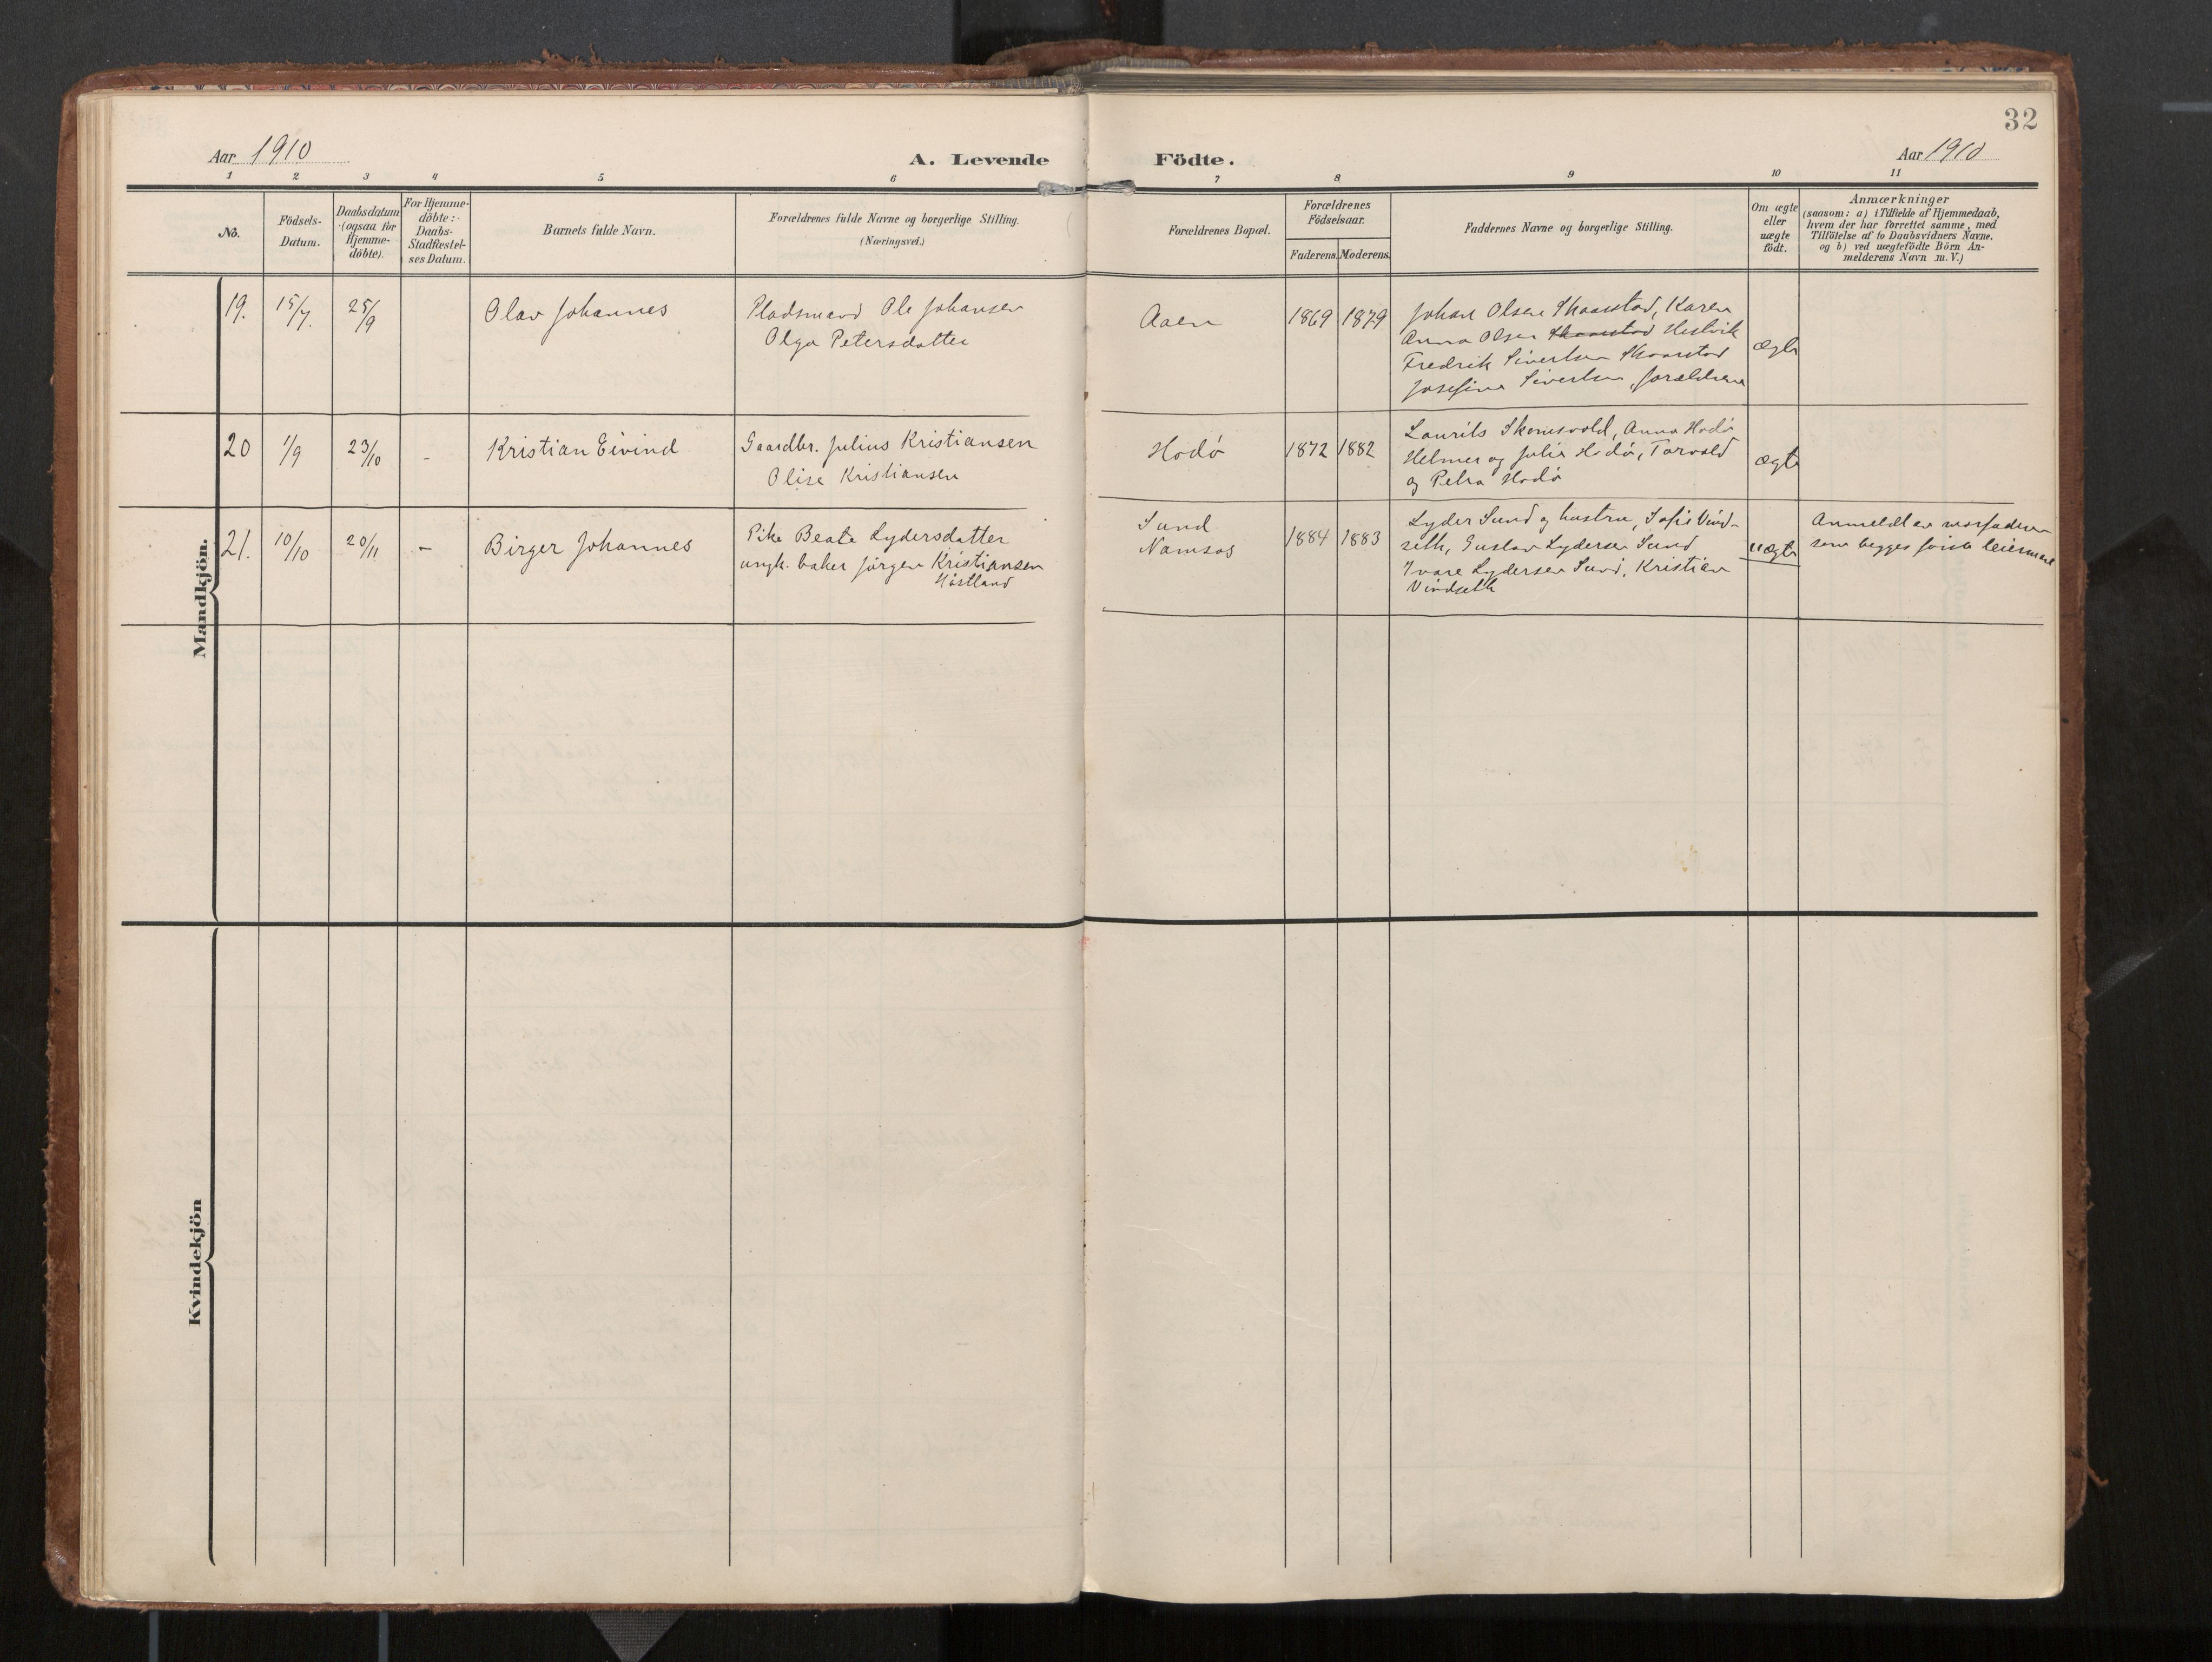 32
Aar 1910
A. Levende
Födte.
Aar 1910
1 2 3 4 5 6 7 8 9 10 11
No.
Födsels-
Datum.
Daabsdatum
(ogsaa for
Hjemme-
döbte).
For Hjemme-
döbte:
Daabs-
Stadfæstel-
ses Datum.
Barnets fulde Navn.
Forældrenes fulde Navne og borgerlige Stilling.
(Næringsvei.)
Forældrenes Bopæl.
Forældrenes
Födselsaar.
Faderens. Moderens.
Faddernes Navne og borgerlige Stilling.
Om ægte
eller
uægte
födt.
Anmærkninger
(saasom: a) i Tilfælde af Hjemmedaab,
hvem der har forrettet samme, med
Tilföielse af to Daabsvidners Navne,
og b) ved uægtefödte Börn An-
melderens Navn m.V.)
Mandkjön.
19. 15/7. 25/9
Olav Johannes
Pladsmand Ole Johansen
Olga Petersdatter
Aaen
1869 1879
Johan Olsen Skaarstad, Karen
Anna Olsen Skaarstad Hestvik
Fredrik Sivertsen Skaarstad
Josefine Sivertsen, forældrene
ægte
20 1/9 23/10 -
Kristian Eivind
Gaardbr. Julius Kristiansen
Olise Kristiansen
Hodö
1872 1882
Laurits Skomsvold, Anna Hodö
Helmer og Julie Hodö, Torvald
og Petra Hodö
ægte
21. 10/10 20/11 -
Birger Johannes
Pike Beate Lydersdatter
ungk. baker Jörgen Kristiansen
Höstland
Sund
Namsos
1884 1883
Lyder Sund og hustru, Sofie Vind-
seth, Gustav Lydersen Sund
Ivare Lydersen Sund, Kristian
Vindseth
uægte
Anmeldt av morfaderen
som begges förste leiermaal
Kvindekjön